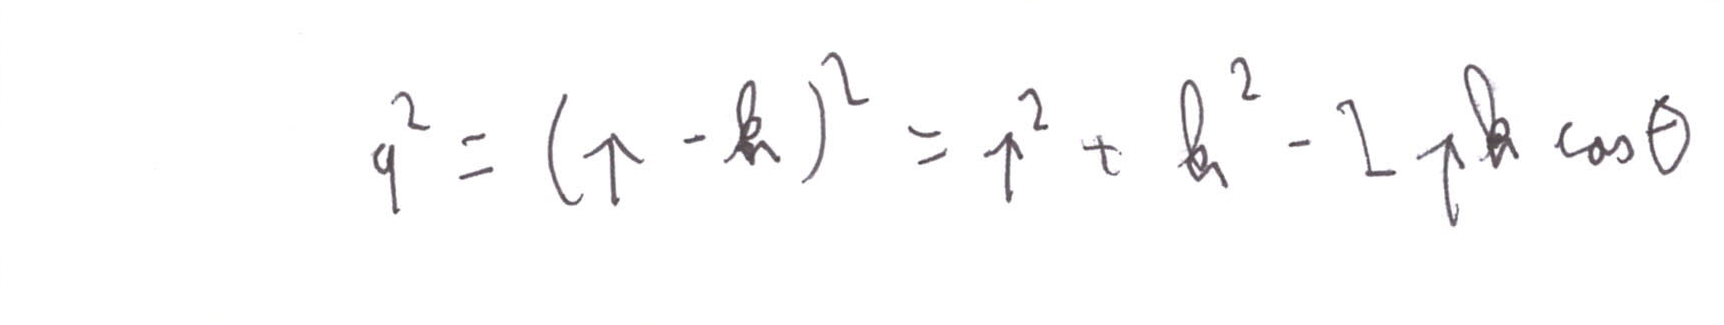 q² = (p - k)² = p² + k² - 2pk cosθ